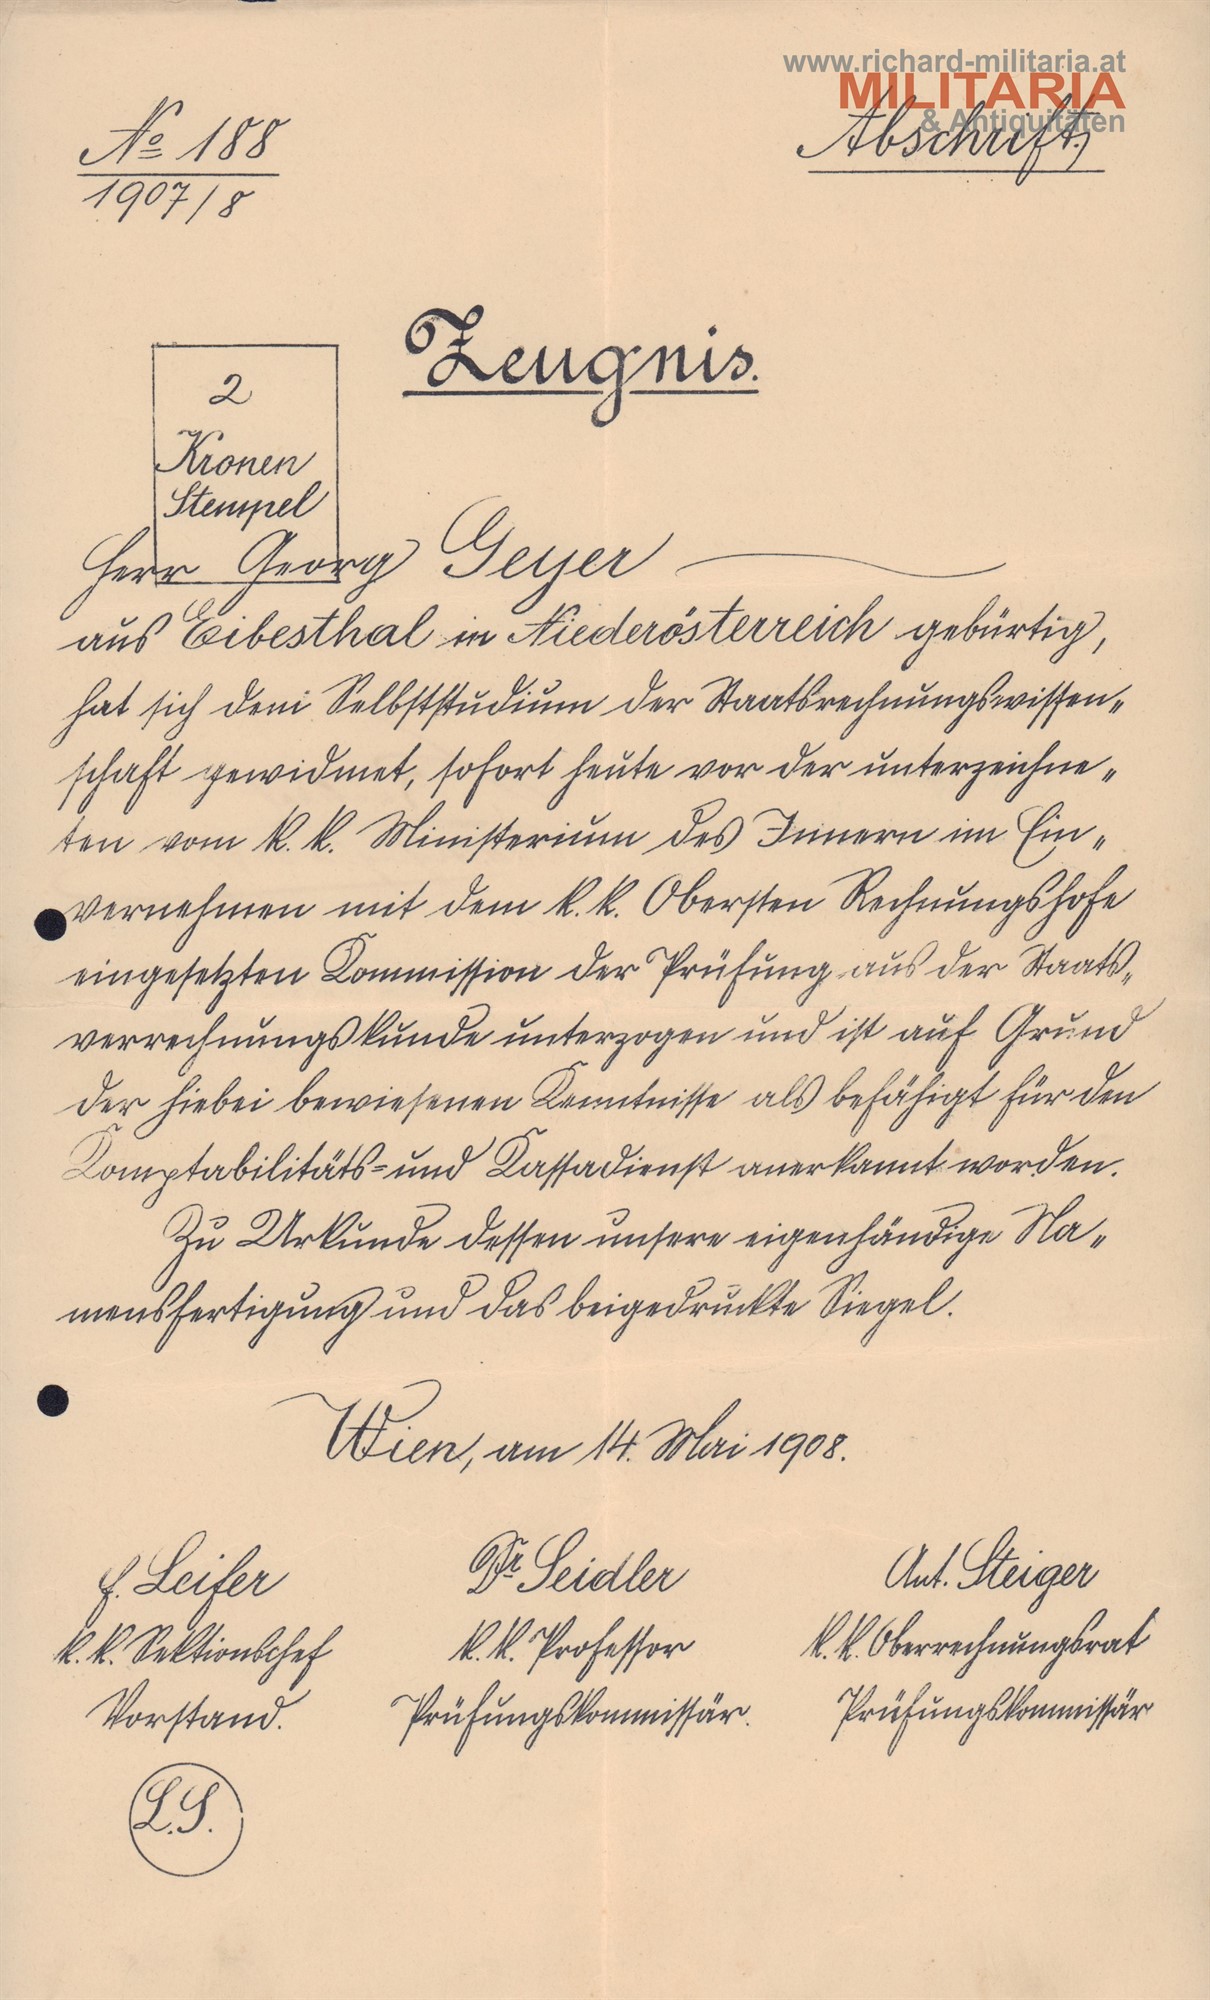 www.richard-militaria.at
MILITARIA
& Antiquitäten
No 188
1907/8
Abschrift.
Zeugnis.
2
Kronen
Stempel
Herr Georg Geyer
aus Eibesthal in Niederösterreich gebürtig,
hat sich dem Selbststudium der Staatsrechnungswissen„
schaft gewidmet, sofort heute vor der unterzeichne„
ten vom k. k. Ministerium des Innern im Ein„
vernehmen mit dem k. k. Obersten Rechnungshofe
eingesetzten Commission der Prüfung aus der Staats„
verrechnungskunde unterzogen und ist auf Grund
der hiebei bewiesenen Kenntnisse als befähigt für den
Komptabilitäts= und Kassadienst anerkannt worden.
Zu Urkunde dessen unsere eigenhändige Na„
mensfertigung und das beigedruckte Siegel.
Wien, am 14. Mai 1908.
f. Leifer
k. k. Sektionschef
Vorstand.
Dr Seidler
k. k. Professor
Prüfungskommissär.
Ant. Steiger
k. k. Oberrechnungsrat
Prüfungskommissär
L.S.